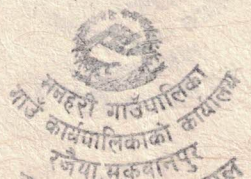 मनहरी गाउँपालिका
गाउँ कार्यपालिकाको कार्यालय
रजैया मकवानपुर